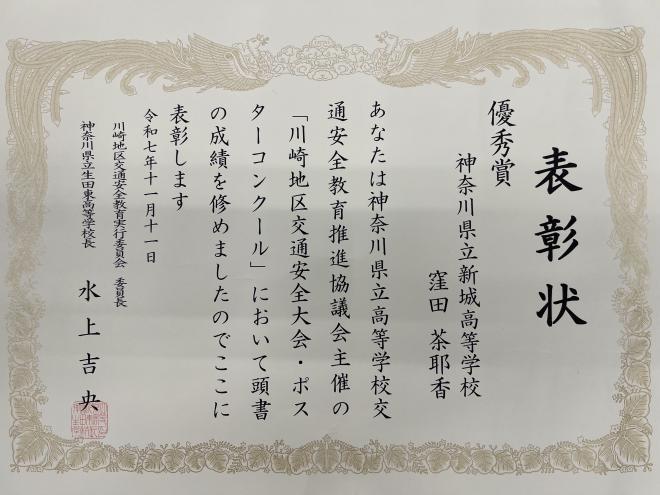 表彰状
優秀賞
神奈川県立新城高等学校
窪田 茶耶香
あなたは神奈川県立高等学校交
通安全教育推進協議会主催の
「川崎地区交通安全大会・ポス
ターコンクール」において頭書
の成績を修めましたのでここに
表彰します
令和七年十一月十一日
川崎地区交通安全教育実行委員会 委員長
神奈川県立生田東高等学校長
水上吉央